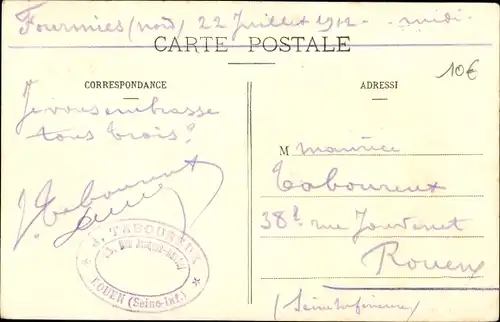 Fourmies (nord) 22 Juillet 1912 - midi
CARTE POSTALE
CORRESPONDANCE
ADRESSE
10€
Je vous embrasse
tous trois.
J. Taboureux
J. TABOUREUX
ROUEN (Seine-Inf.)
M maurice
Taboureux
38 rue Jouvenet
Rouen
(Seine Inférieure)